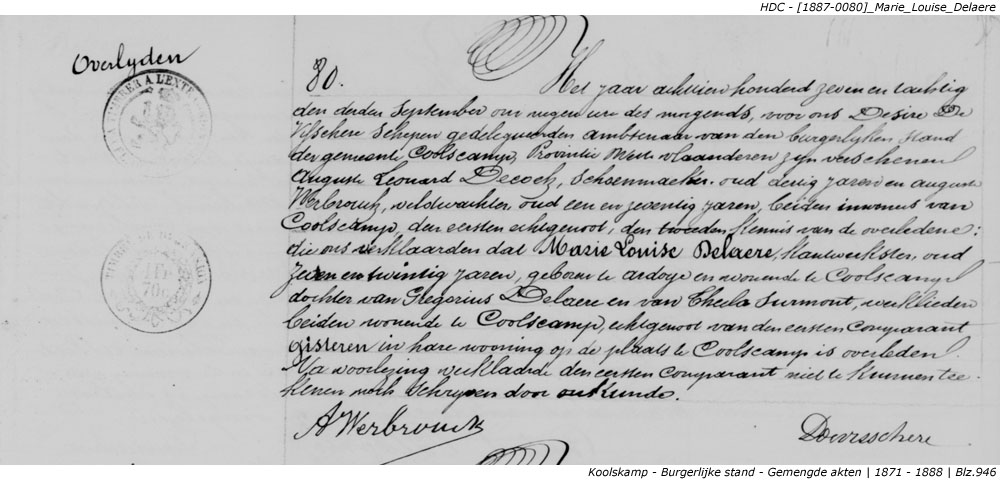 HDC - [1887-0080]_Marie_Louise_Delaere
Overlyden
80.
Het jaar achtien honderd zeven en tachtig
den derden September om negen ure des morgends, voor ons Desiré De
Visschere Schepen gedelegueerden ambtenaar van den burgerlyken Stand
der gemeente Coolscamp, Provintie West vlaanderen zyn verschenen
Auguste Leonard Decock, Schoenmaker oud dertig jaren en auguste
Werbrouck, veldwachter oud een en zeventig jaren, beiden inwoners van
Coolscamp, den eersten echtgenoot, den tweeden kennis van de overledene;
die ons verklaarden dat Marie Louise Delaere, kantwerkster, oud
zeven en twintig jaren, geboren te ardoye en wonende te Coolscamp
dochter van Gregorius Delaere en van Thecla Surmont, werklieden
beiden wonende te Coolscamp, echtgenoot van den eersten Comparant
gisteren in hare wooning op de plaats te Coolscamp is overleden.
Na voorlezing verklaarde den eersten Comparant niet te kunnen tee-
kenen noch Schryven door onkunde.
AWerbrouck
Devisschere
Koolskamp - Burgerlijke stand - Gemengde akten | 1871 - 1888 | Blz.946